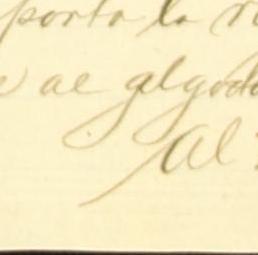 porta la
ae algodo
Al